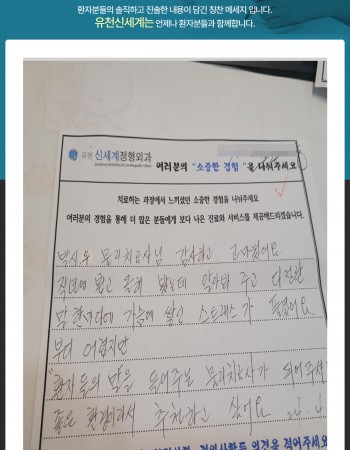 환자분들의 솔직하고 진솔한 내용이 담긴 칭찬 메세지 입니다.
유천신세계는 언제나 환자분들과 함께합니다.
유천 신세계정형외과
여러분의 "소중한 경험"을 나눠주세요
치료하는 과정에서 느끼셨던 소중한 경험을 나눠주세요
여러분의 경험을 통해 더 많은 분들에게 보다 나은 진료와 서비스를 제공해드리겠습니다.
박시우 물리치료사님 감사하고 고마웠어요
작년에 봤고 올해 봤는데 알아봐 주고 다정한
말 한마디에 가슴에 쌓인 스트레스가 풀렸어요
부디 어렵지만
"환자들의 말을 들어주는 물리치료사가 되어주세
좋은 환경이라서 추천하고 싶어요
의견을 적어주세요"